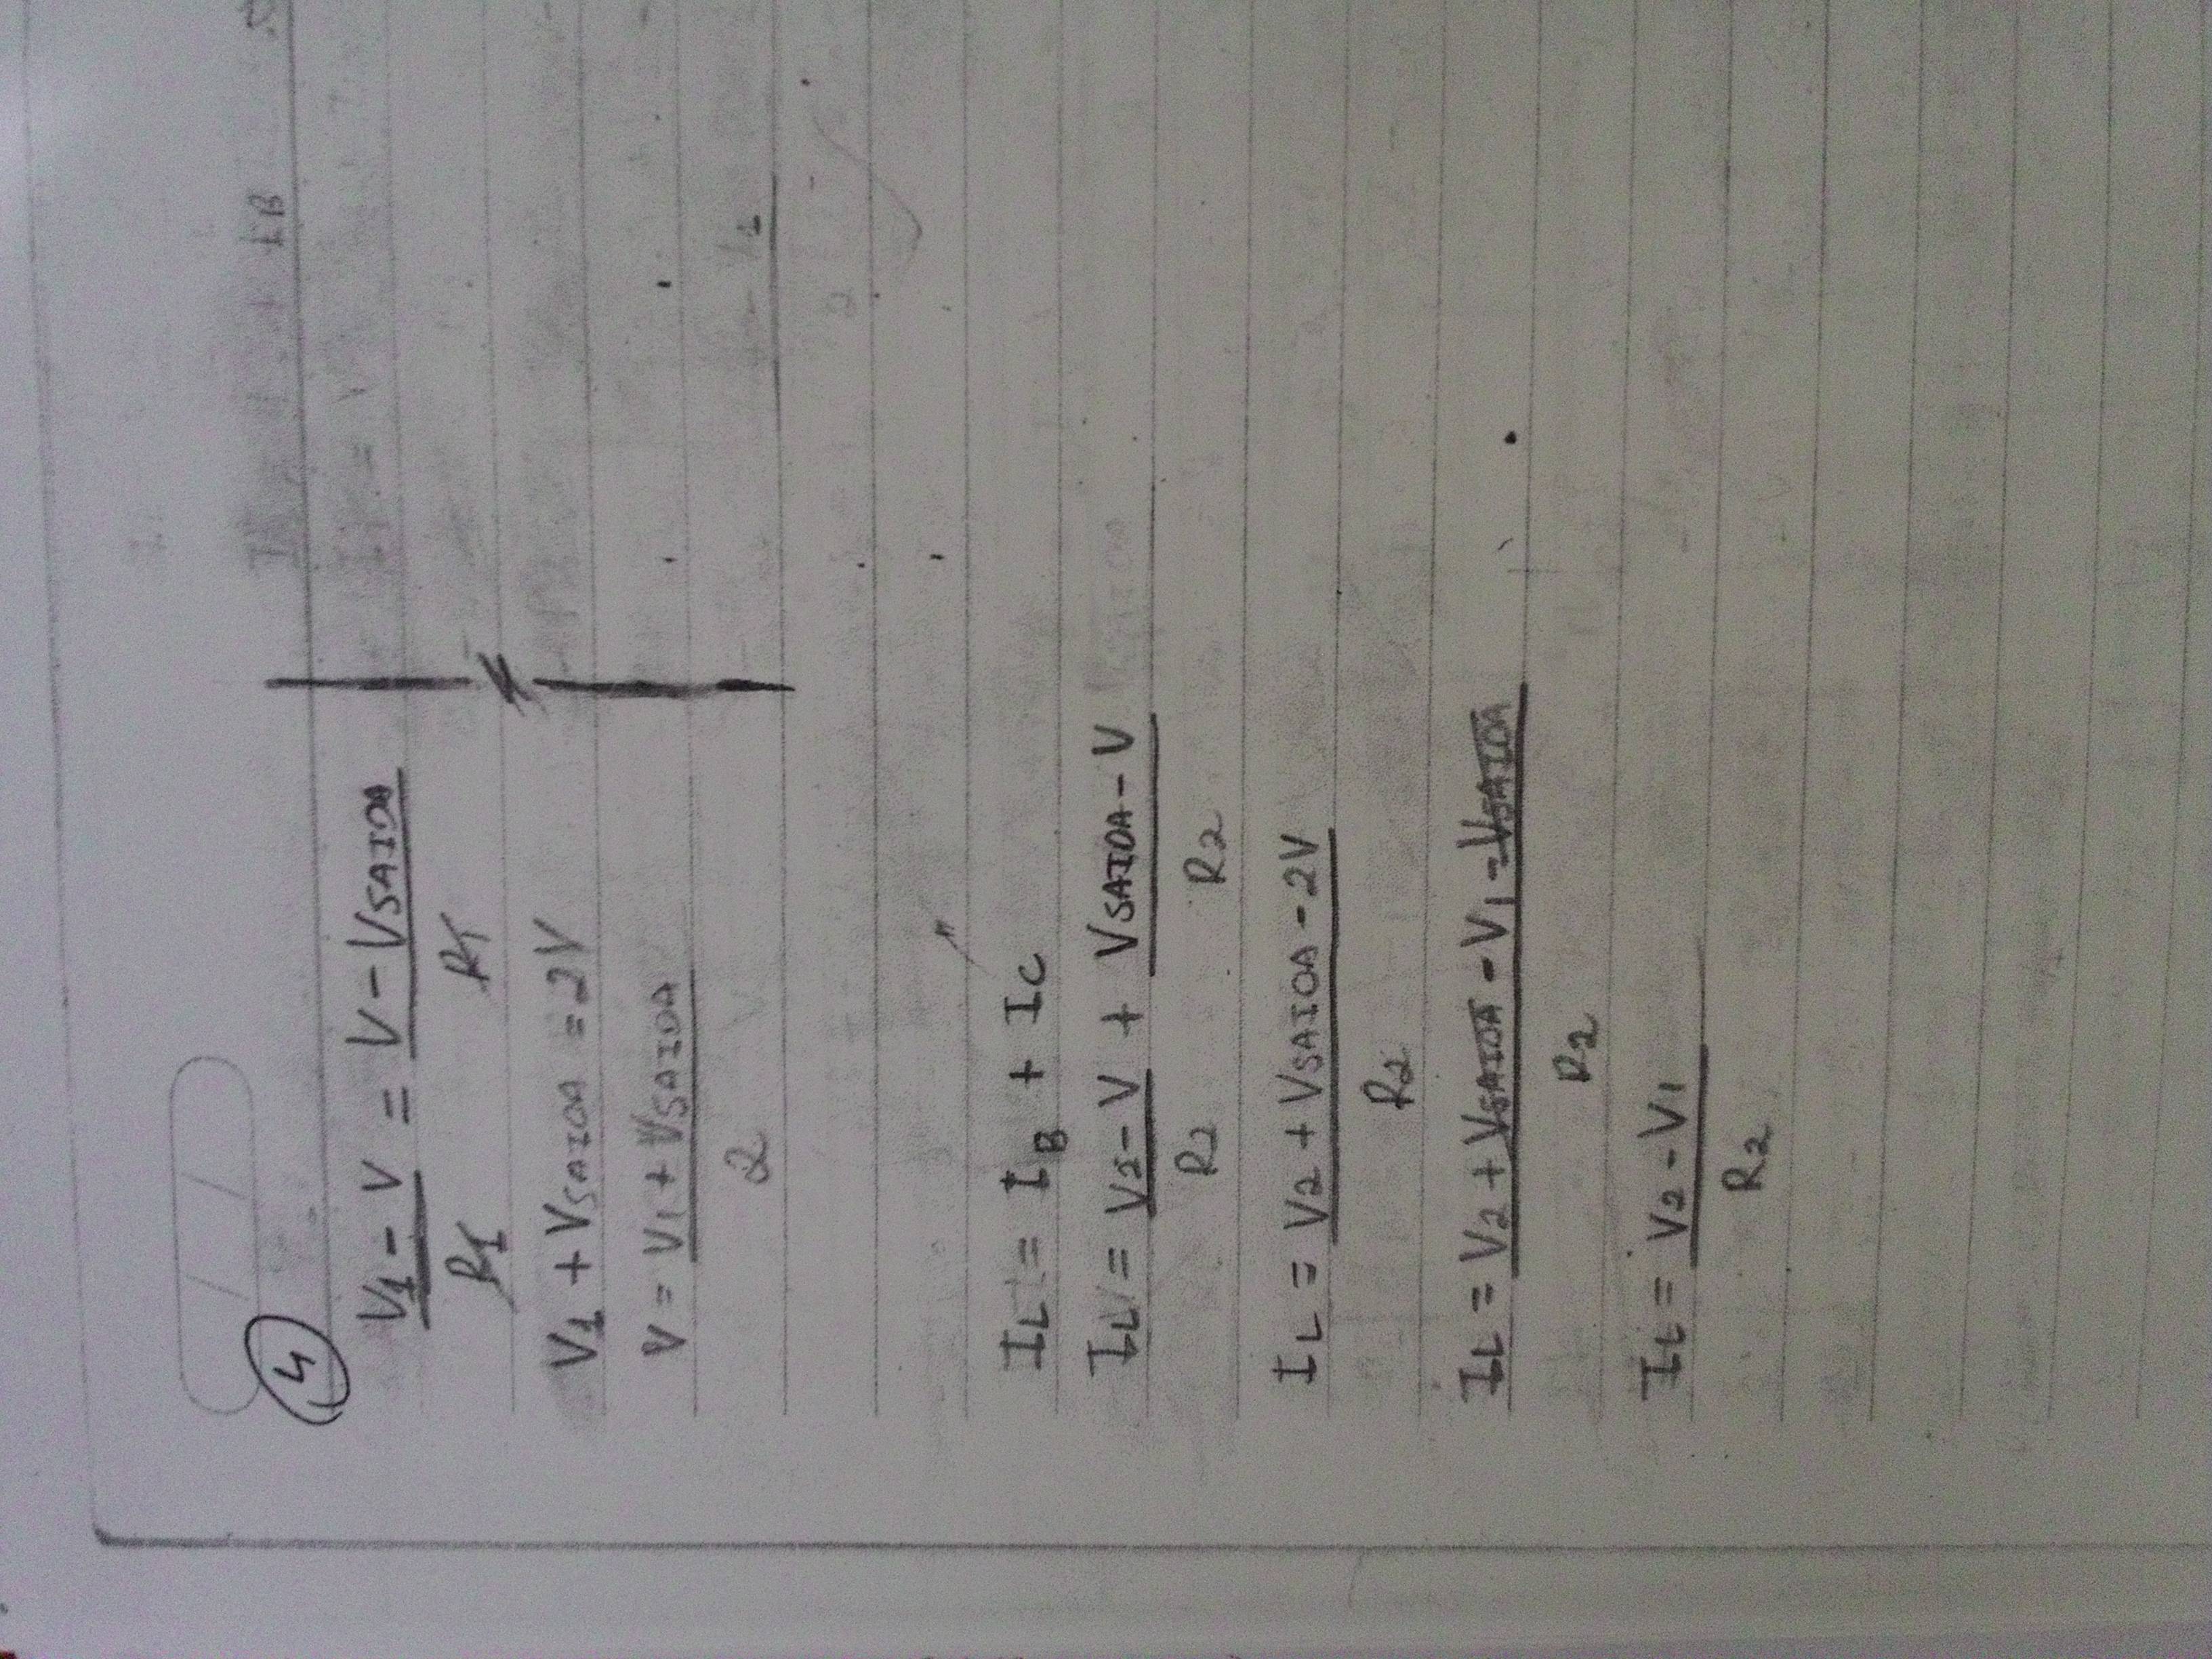 4
V1 - V = V - VSAIDA
R1 R1
V1 + VSAIDA = 2V
V = V1 + VSAIDA
2
IL = IB + IC
IL = V2 - V + VSAIDA - V
R2 R2
IL = V2 + VSAIDA - 2V
R2
IL = V2 + VSAIDA - V1 - VSAIDA
R2
IL = V2 - V1
R2